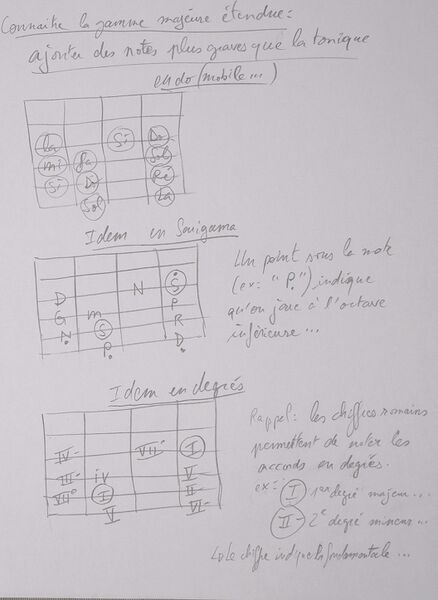 Connaitre la gamme majeure étendue :
ajouter des notes plus graves que la tonique
en do (mobile...)
La Si Do
mi Fa Sol
Si Do Ré
Sol La
Idem en Sargama
Un point sous la note
(ex: "Ṣ P."), indique
qu'on joue à l'octave
inférieure...
N Ṡ
D P
G m R
Ṇ S Ḍ
P.
Idem en degrés
Rappel: les chiffres romains
permettent de noter les
accords en degrés.
ex: I 1er degré majeur...
II- 2e degré mineur...
Le chiffre indique la fondamentale...
IV- VII° I
III- IV V
VII° I II-
V VI-